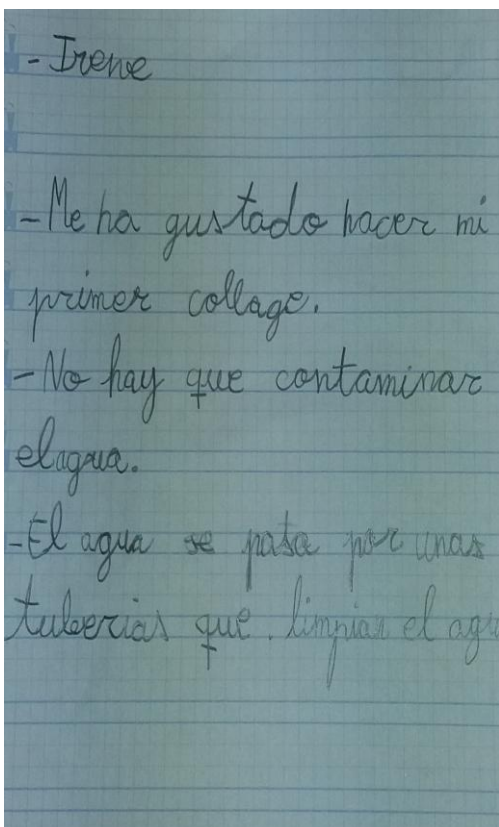 - Irene
- Me ha gustado hacer mi
primer collage.
- No hay que contaminar
el agua.
- El agua se pasa por unas
tuberias que limpian el agu